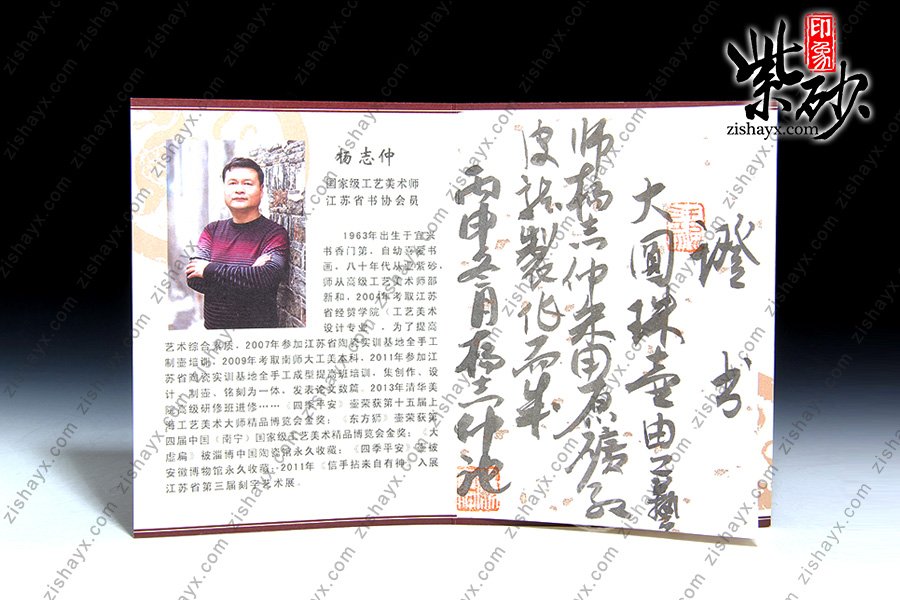 紫砂
印象
zishayx.com
杨志仲
国家级工艺美术师
江苏省书协会员
1963年出生于宜兴
书香门第，自幼喜爱书
画，八十年代从事紫砂，
师从高级工艺美术师邵
新和，2004年考取江苏
省经贸学院《工艺美术
设计专业》，为了提高
艺术综合素质，2007年参加江苏省陶瓷实训基地全手工
制壶培训，2009年考取南师大工美本科，2011年参加江
苏省陶瓷实训基地全手工成型提高班培训，集创作、设
计、制壶、铭刻为一体，发表论文数篇。2013年清华美
院高级研修班进修……《四季平安》壶荣获第十五届上
海工艺美术大师精品博览会金奖；《东方狮》壶荣获第
四届中国（南宁）国家级工艺美术精品博览会金奖；《大
虚扁》被淄博中国陶瓷馆永久收藏；《四季平安》壶被
安徽博物馆永久收藏；2011年《信手拈来自有神》入展
江苏省第三届刻字艺术展。
證书
大圆珠壶由工藝
师杨志仲采用原礦红
皮龙製作而成
丙申冬月杨志仲记